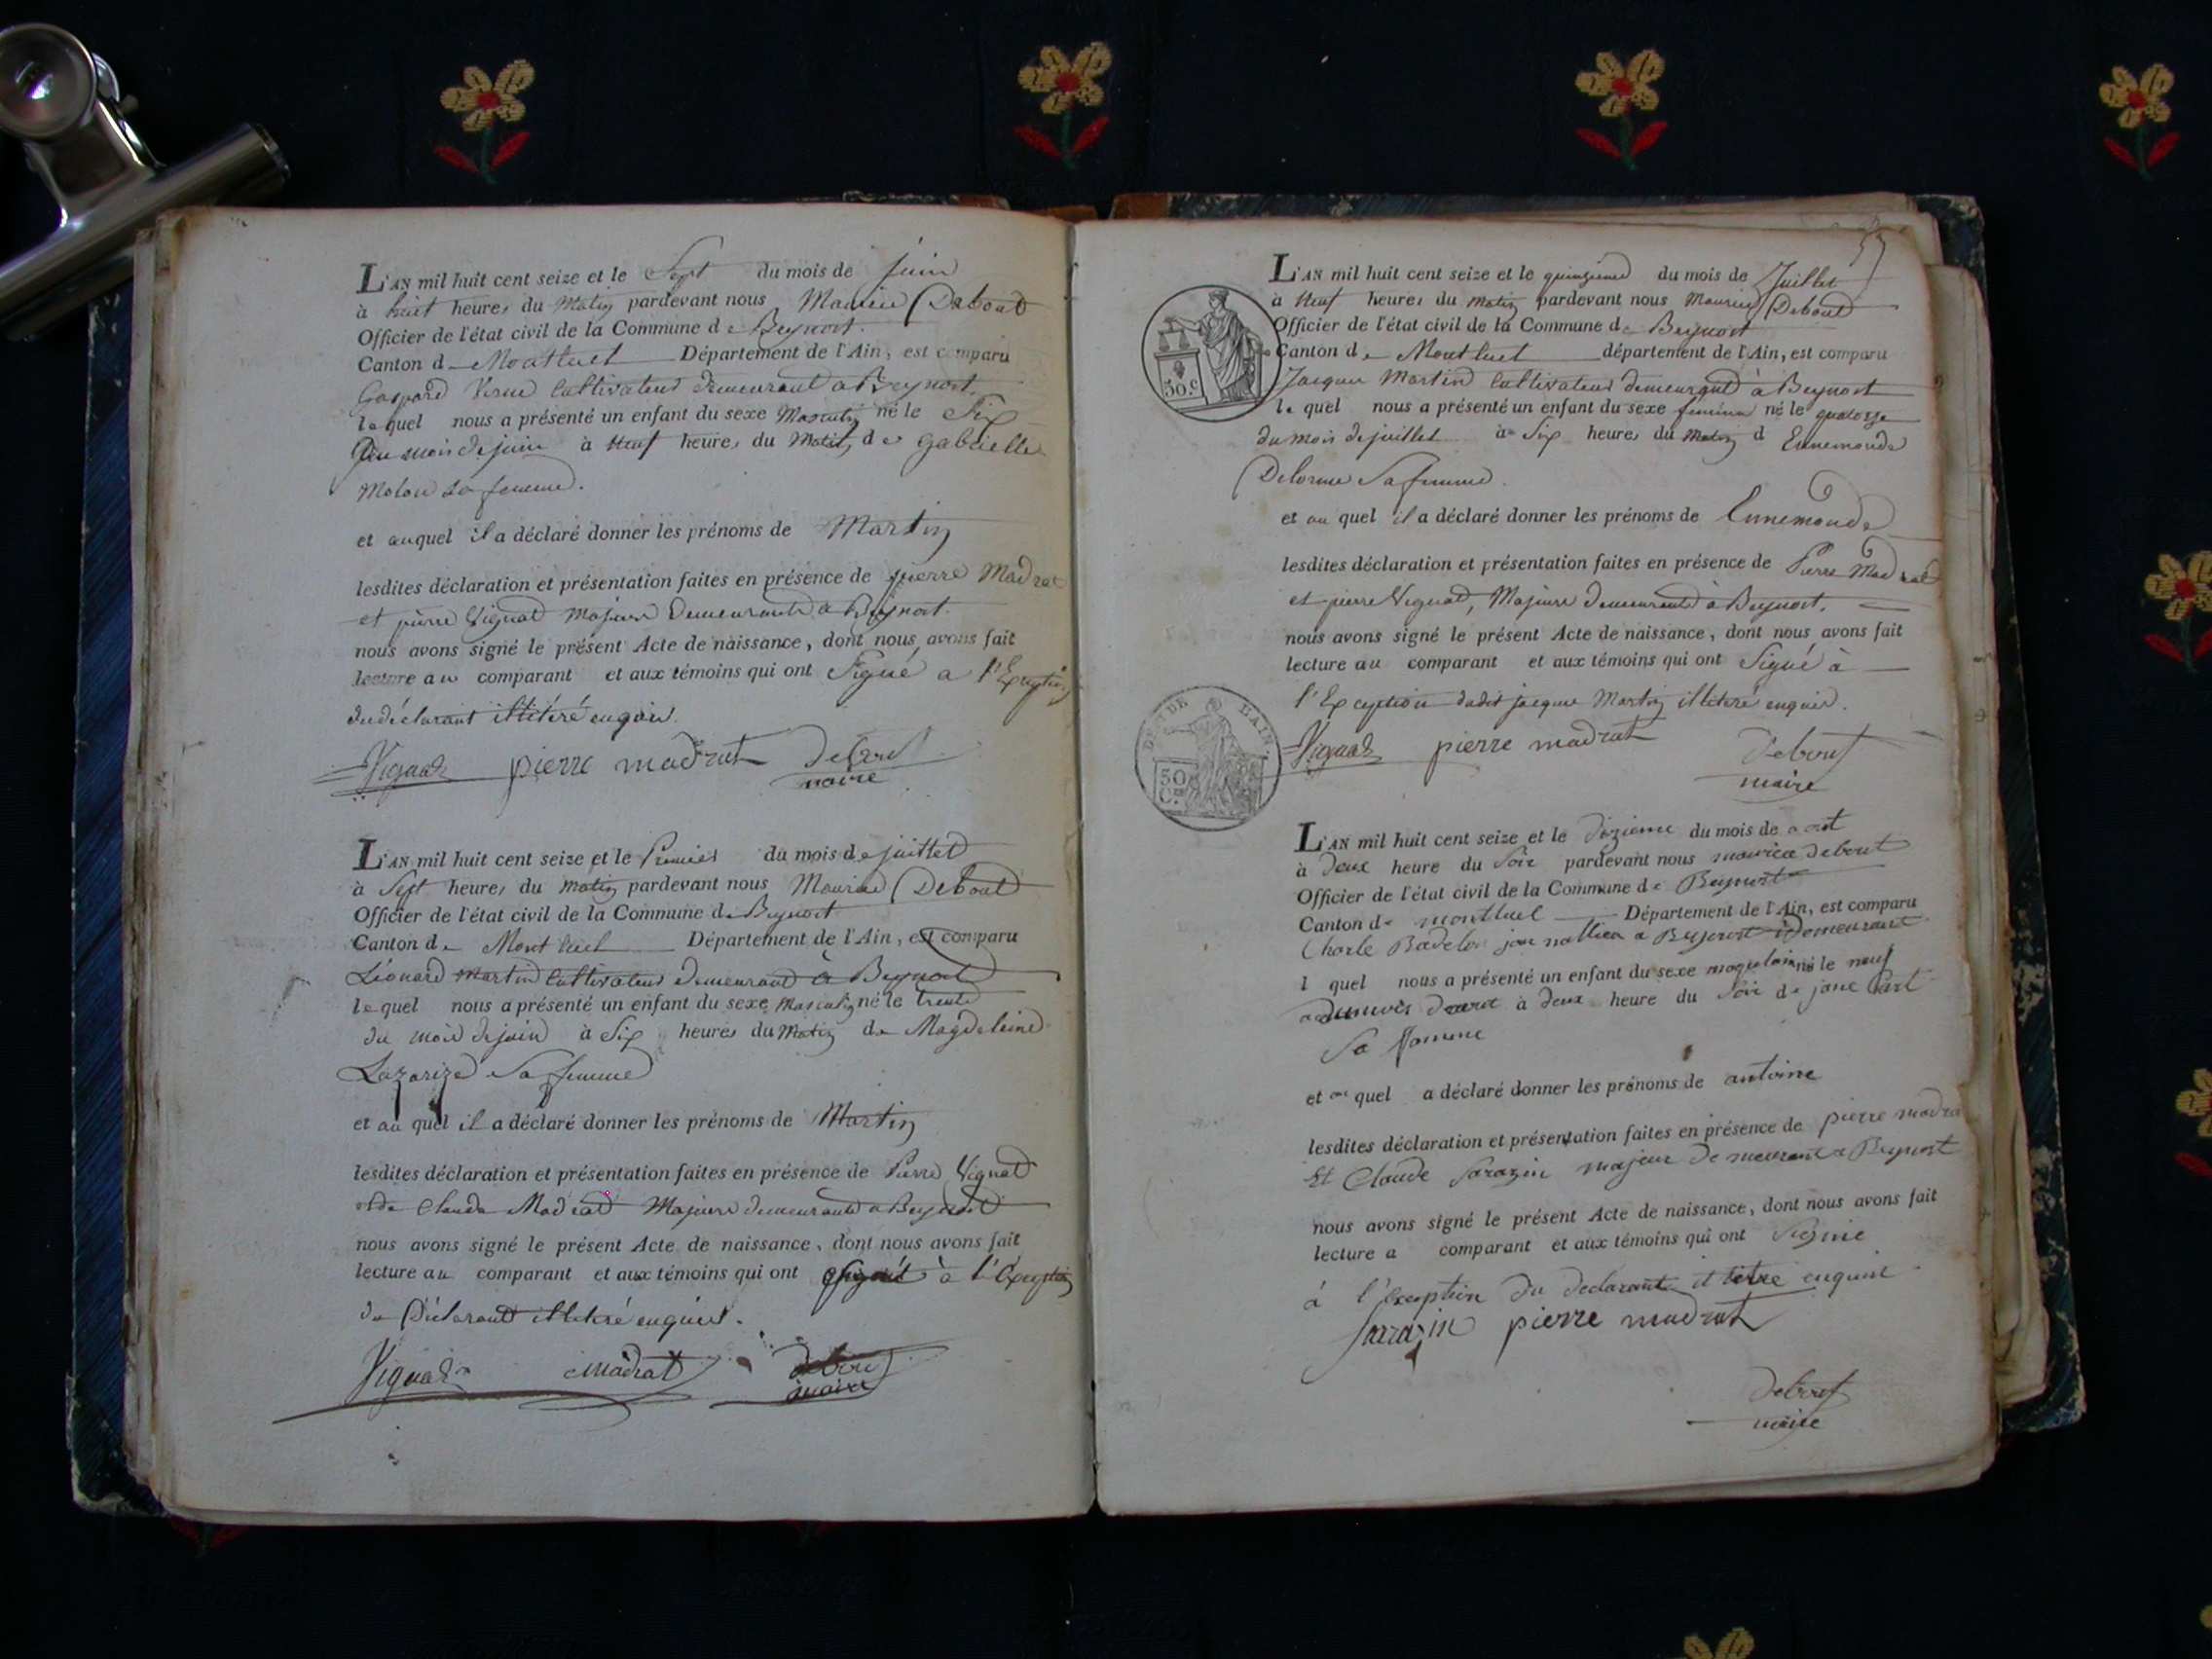 L'AN mil huit cent seize et le Sept du mois de juin
à huit heures du Matin pardevant nous Maurice Debout
Officier de l'état civil de la Commune de Beynost.
Canton de Montluel Département de l'Ain, est comparu
Gaspard Cultivateur demeurant a Beynost,
lequel nous a présenté un enfant du sexe Masculin né le Six
du mois de juin à Neuf heures du Matin, de Gabrielle
Molou sa femme.
et auquel il a déclaré donner les prénoms de Martin
lesdites déclaration et présentation faites en présence de pierre Madrat
et pierre Vignat Majeurs Demeurants a Beynost.
nous avons signé le présent Acte de naissance, dont nous avons fait
lecture au comparant et aux témoins qui ont Signé a l'Exception
du déclarant illitéré enquis.
Vignat pierre madrat debout
maire
L'AN mil huit cent seize et le Premier du mois de juillet
à Sept heures du matin pardevant nous Maurice Debout
Officier de l'état civil de la Commune de Beynost
Canton de Montluel Département de l'Ain, est comparu
Léonard Martin Cultivateur demeurant à Beynost
lequel nous a présenté un enfant du sexe Masculin né le trente
du mois de juin à Six heures du Matin de Magdeleine
Lazarize Sa femme
et au quel il a déclaré donner les prénoms de Martin
lesdites déclaration et présentation faites en présence de Pierre Vignat
et de Claude Madrat Majeurs demeurants a Beynost
nous avons signé le présent Acte de naissance, dont nous avons fait
lecture au comparant et aux témoins qui ont signé à l'Exception
du Déclarant illitéré enquis.
Vignat Madrat debout
maire
55
L'AN mil huit cent seize et le quinzieme du mois de Juillet
à Neuf heures du matin pardevant nous Maurice Debout
Officier de l'état civil de la Commune de Beynost
Canton de Montluel département de l'Ain, est comparu
50.c
Jacques Martin Cultivateur demeurant à Beynost
le quel nous a présenté un enfant du sexe féminin né le quatorze
du mois de juillet à Six heures du Matin d Ennemonde
Delorme Sa femme.
et au quel il a déclaré donner les prénoms de Ennemonde
lesdites déclaration et présentation faites en présence de Pierre Madrat
et pierre Vignat, Majeurs demeurants à Beynost.
nous avons signé le présent Acte de naissance, dont nous avons fait
lecture au comparant et aux témoins qui ont Signé à
l'Exception dudit jacque Martin illitéré enquis.
DE L'AIN
50
C.es
Vignat pierre madrat debout
maire
L'AN mil huit cent seize et le dizieme du mois de aout
à deux heure du Soir pardevant nous maurice debout
Officier de l'état civil de la Commune de Beynost
Canton de montluel Département de l'Ain, est comparu
Charle Badelon a Beynost demeurant
l quel nous a présenté un enfant du sexe né le neuf
du mois d'aout à deux heure du Soir de jane
Sa famme
et au quel a déclaré donner les prénoms de antoine
lesdites déclaration et présentation faites en présence de pierre madra
Et Claude Sarazin majeur demeurant a Beynost
nous avons signé le présent Acte de naissance, dont nous avons fait
lecture a comparant et aux témoins qui ont Signié
à l'exception du declarant enquise
Sarazin pierre madrat
debout
maire